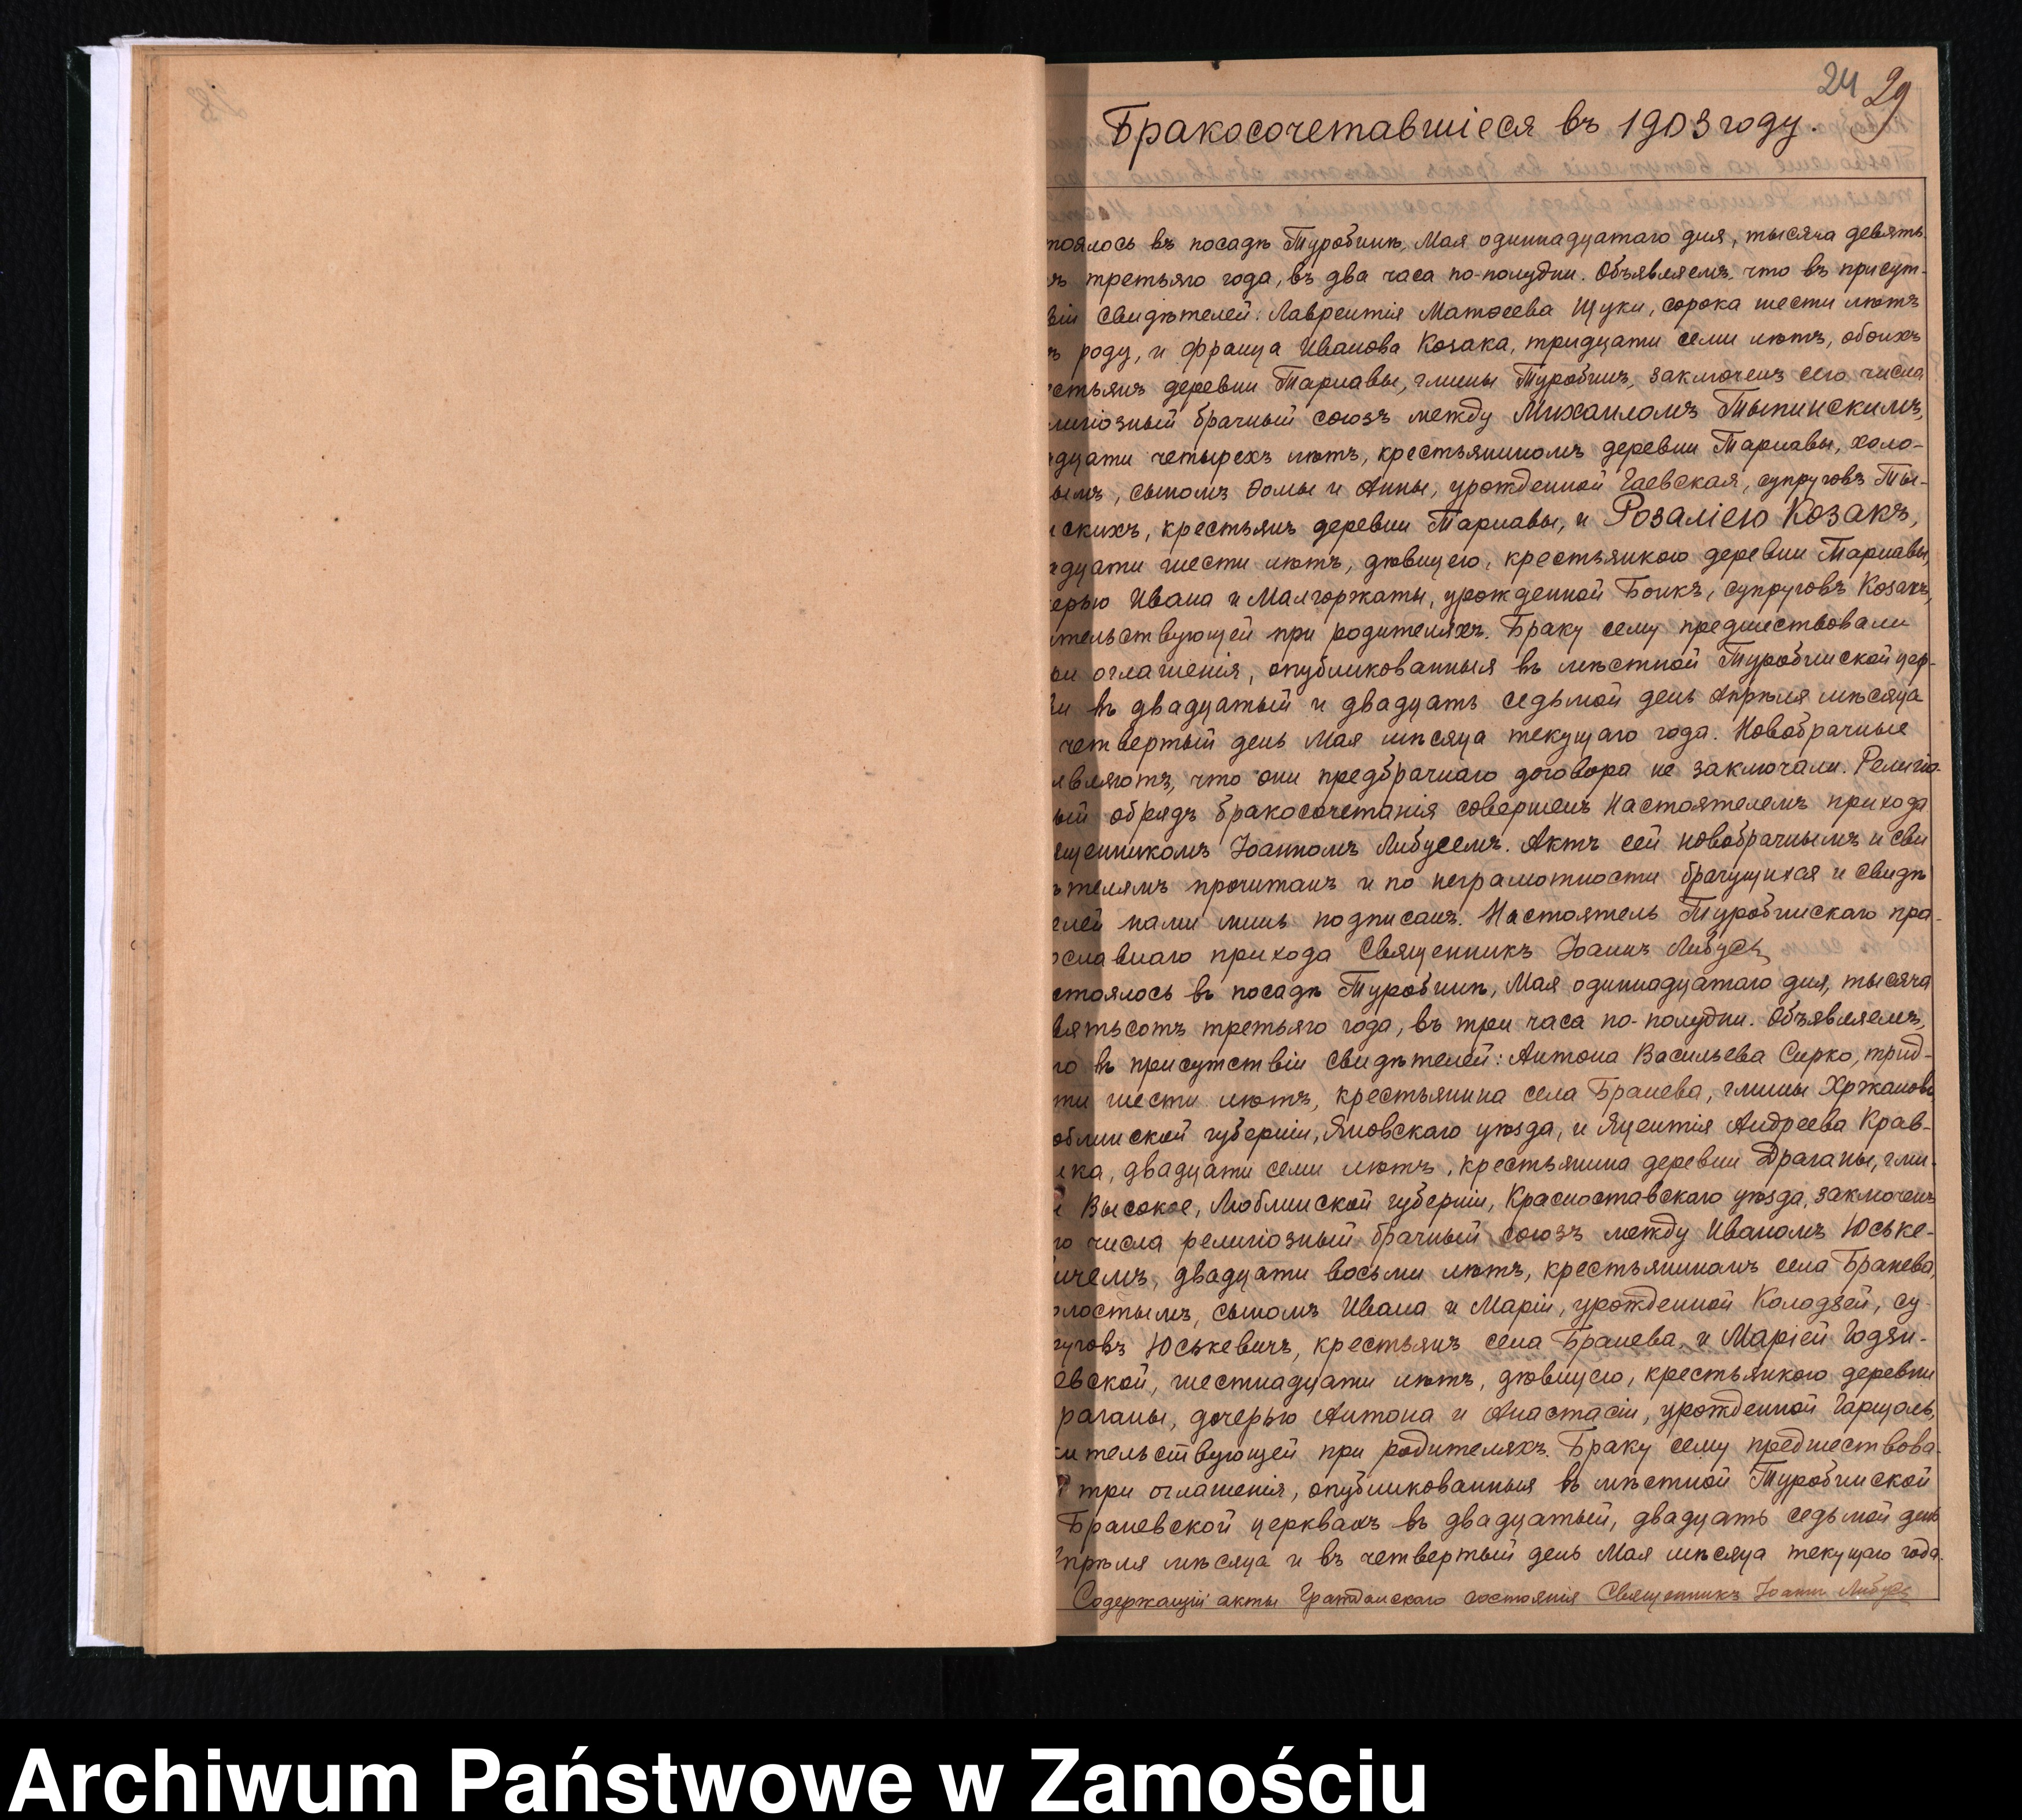 24 29
Бракосочетавшіеся въ 1903 году.
тоялось въ посадѣ Туробинѣ, Мая одиннадцатаго дня, тысяча девять-
третьяго года, въ два часа по-полудни. Объявляемъ, что въ присут-
віи свидѣтелей: Лаврентія Матѳеева Щуки, сорока шести лѣтъ
роду, и Франца Иванова Козака, тридцати семи лѣтъ, обоихъ
естьянъ деревни Тарнавы, гмины Туробинъ, заключенъ сего числа
лигіозный брачный союзъ между Михаиломъ Тыпинскимъ,
адцати четырехъ лѣтъ, крестьяниномъ деревни Тарнавы, холо-
ымъ, сыномъ Ѳомы и Анны, урожденной Гаевская, супруговъ Ты-
скихъ, крестьянъ деревни Тарнавы, и Розаліею Козакъ,
адцати шести лѣтъ, дѣвицею, крестьянкою деревни Тарнавы,
ерью Ивана и Малгоржаты, урожденной Боикъ, супруговъ Козакъ,
ительствующей при родителяхъ. Браку сему предшествовали
ри оглашенія, опубликованныя въ мѣстной Туробинской цер-
въ двадцатый и двадцать седьмой день Апрѣля мѣсяца
четвертый день Мая мѣсяца текущаго года. Новобрачные
являютъ, что они предбрачнаго договора не заключали. Религіо-
ый обрядъ бракосочетанія совершенъ Настоятелемъ прихода
ященникомъ Іоанномъ Либусемъ. Актъ сей новобрачнымъ и сви
ѣтелямъ прочитанъ и по неграмотности брачущихся и свидѣ
елей нами лишь подписанъ. Настоятель Туробинскаго пра-
ославнаго прихода Священникъ Іоаннъ Либусь
стоялось въ посадѣ Туробинѣ, Мая одиннадцатаго дня, тысяча
вятьсотъ третьяго года, въ три часа по-полудни. Объявляемъ,
то въ присутствіи свидѣтелей: Антона Васильева Сирко, трид-
ти шести лѣтъ, крестьянина села Бранева, гмины Хржановъ
облинской губерніи, Яновскаго уѣзда, и Яцентія Андреева Крав-
ика, двадцати семи лѣтъ, крестьянина деревни Драганы, гми-
Высокое, Люблинской губерніи, Красноставскаго уѣзда, заключенъ
го числа религіозный брачный союзъ между Иваномъ Юське-
ичемъ, двадцати восьми лѣтъ, крестьяниномъ села Бранева,
олостымъ, сыномъ Ивана и Маріи, урожденной Колодзей, су-
руговъ Юськевичъ, крестьянъ села Бранева, и Маріей Годзи-
евской, шестнадцати лѣтъ, дѣвицею, крестьянкою деревни
раганы, дочерью Антона и Анастасіи, урожденной Гарцаль,
ительствующей при родителяхъ. Браку сему предшествова-
три оглашенія, опубликованныя въ мѣстной Туробинской
Браневской церквахъ въ двадцатый, двадцать седьмой день
прѣля мѣсяца и въ четвертый день Мая мѣсяца текущаго года.
Содержащій акты Гражданскаго состоянія Священникъ Іоаннъ Либусь
Archiwum Państwowe w Zamościu